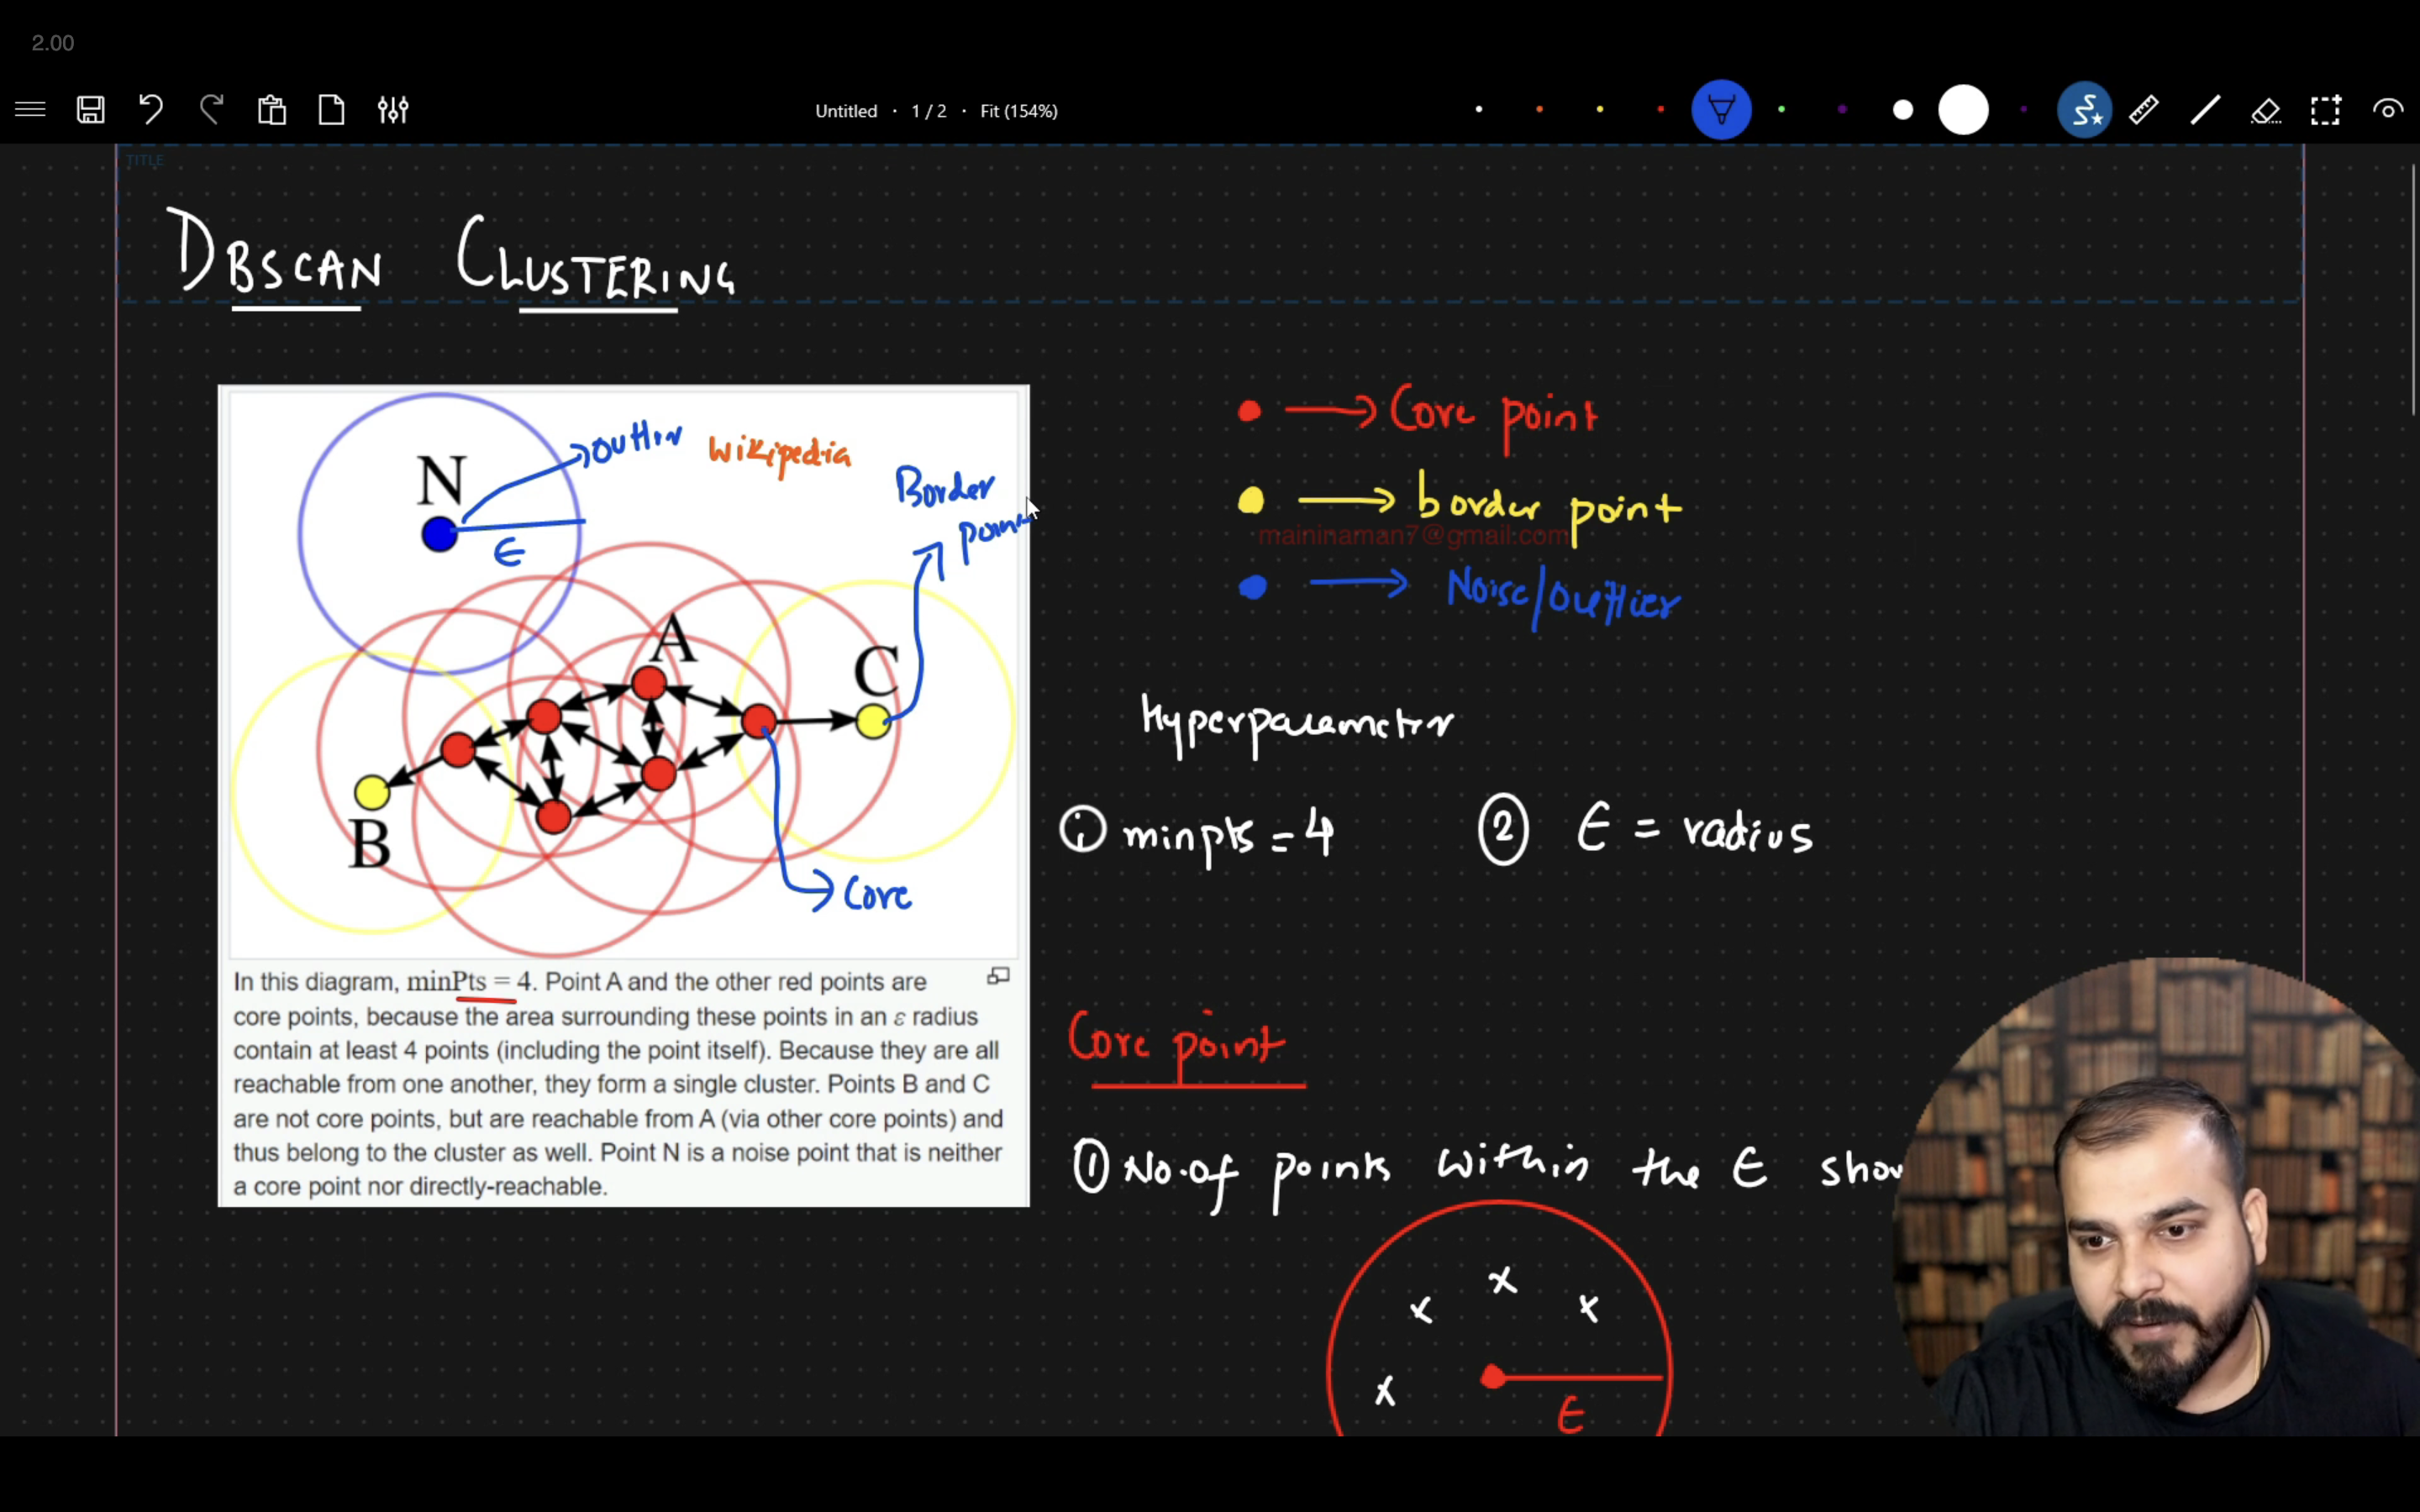 2.00
Untitled · 1 / 2 · Fit (154%)
TITLE
DBSCAN CLUSTERING
N
outlier
Wikipedia
Border
point
ϵ
A
C
B
Core
In this diagram, minPts = 4. Point A and the other red points are
core points, because the area surrounding these points in an ε radius
contain at least 4 points (including the point itself). Because they are all
reachable from one another, they form a single cluster. Points B and C
are not core points, but are reachable from A (via other core points) and
thus belong to the cluster as well. Point N is a noise point that is neither
a core point nor directly-reachable.
Core point
border point
maininaman7@gmail.com
Noise/outlier
Hyperparameter
① minpts = 4 ② ϵ = radius
Core point
① No. of points within the ϵ shou
x x x
x
ϵ